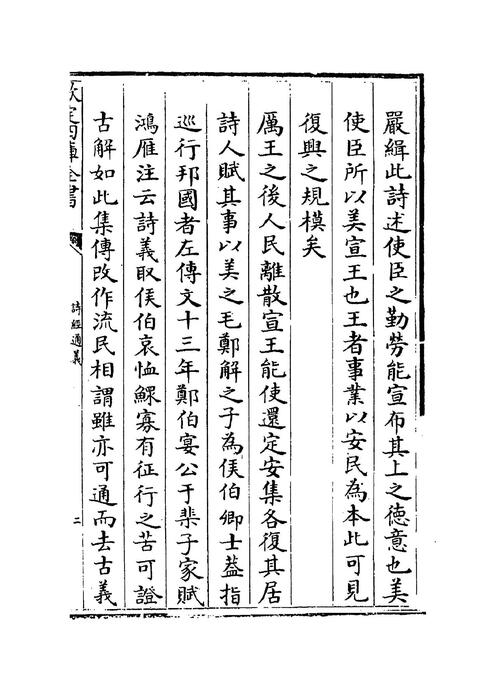 嚴緝此詩述使臣之勤勞能宣布其上之徳意也美
使臣所以美宣王也王者事業以安民為本此可見
復興之規模矣
厲王之後人民離散宣王能使還定安集各復其居
詩人賦其事以美之毛鄭解之子為侯伯卿士葢指
巡行邦國者左傳文十三年鄭伯宴公于棐子家賦
鴻雁注云詩義取侯伯哀恤鰥寡有征行之苦可證
古解如此集傳改作流民相謂雖亦可通而去古義
欽定四庫全書
詩經通義
二